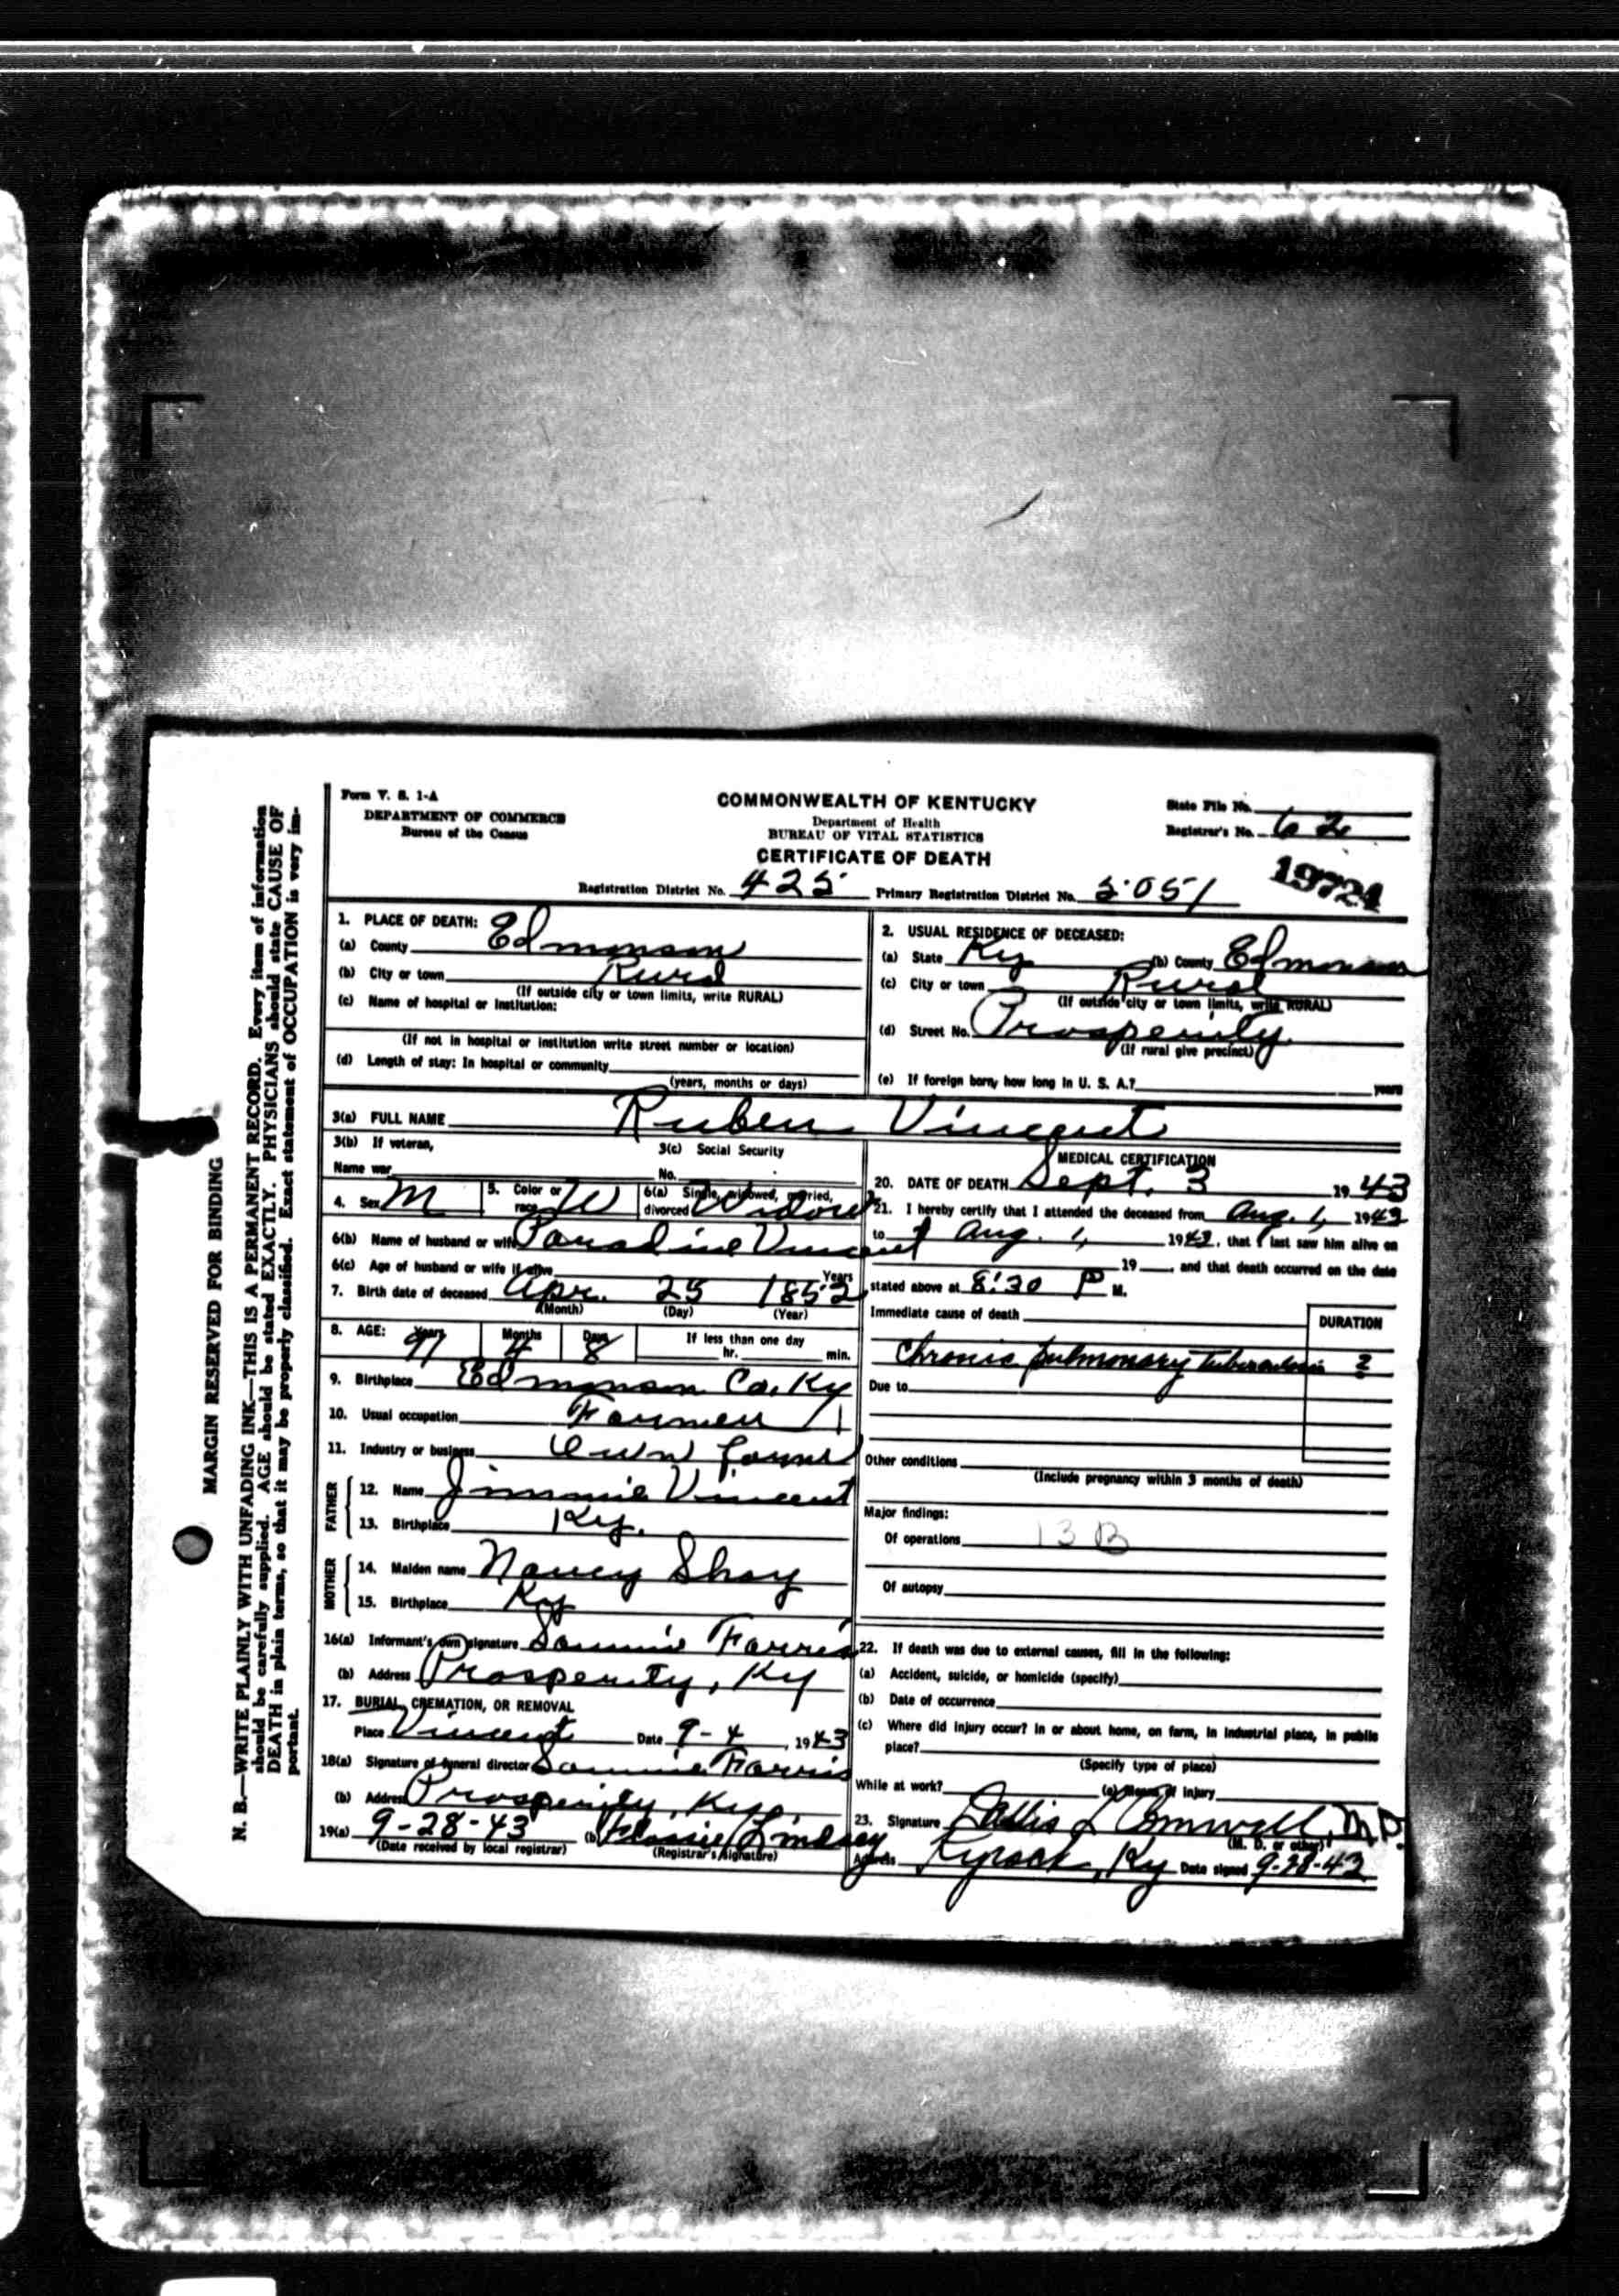 Form V. S. 1-A
DEPARTMENT OF COMMERCE
Bureau of the Census
COMMONWEALTH OF KENTUCKY
Department of Health
BUREAU OF VITAL STATISTICS
CERTIFICATE OF DEATH
State File No.
Registrar's No. 62
19724
Registration District No. 425 Primary Registration District No. 5051
MARGIN RESERVED FOR BINDING
N. B.—WRITE PLAINLY WITH UNFADING INK—THIS IS A PERMANENT RECORD. Every item of information
should be carefully supplied. AGE should be stated EXACTLY. PHYSICIANS should state CAUSE OF
DEATH in plain terms, so that it may be properly classified. Exact statement of OCCUPATION is very im-
portant.
1. PLACE OF DEATH:
(a) County Edmonson
(b) City or town Rural
(If outside city or town limits, write RURAL)
(c) Name of hospital or institution:
(If not in hospital or institution write street number or location)
(d) Length of stay: In hospital or community
(years, months or days)
2. USUAL RESIDENCE OF DECEASED:
(a) State Ky (b) County Edmonson
(c) City or town Rural
(If outside city or town limits, write RURAL)
(d) Street No. Prosperity
(If rural give precinct)
(e) If foreign born, how long in U. S. A.? years
3(a) FULL NAME Ruben Vincent
3(b) If veteran,
Name war
3(c) Social Security
No.
4. Sex M
5. Color or
race W
6(a) Single, widowed, married,
divorced Widow
6(b) Name of husband or wife Vincent
6(c) Age of husband or wife if alive Years
7. Birth date of deceased Apr. 25 1852
(Month) (Day) (Year)
8. AGE: Years 91 Months 4 Days 8 If less than one day
hr. min.
9. Birthplace Edmonson Co. Ky
10. Usual occupation Farmer
11. Industry or business Own farm
FATHER
12. Name Jimmie Vincent
13. Birthplace Ky.
MOTHER
14. Maiden name Nancy Shay
15. Birthplace Ky
16(a) Informant's own signature Sammie Farris
(b) Address Prosperity, Ky
17. BURIAL, CREMATION, OR REMOVAL
Place Vincent Date 9-4, 1943
18(a) Signature of funeral director Sammie Farris
(b) Address Prosperity, Ky.
19(a) 9-28-43 (b) Flossie Lindsey
(Date received by local registrar) (Registrar's signature)
MEDICAL CERTIFICATION
20. DATE OF DEATH Sept. 3 1943
21. I hereby certify that I attended the deceased from Aug. 1, 1943
to Aug. 1, 1943, that I last saw him alive on
19 , and that death occurred on the date
stated above at 8:30 P M.
Immediate cause of death
DURATION
Chronic pulmonary tuberculosis ?
Due to
Other conditions
(Include pregnancy within 3 months of death)
Major findings:
Of operations 13 B
Of autopsy
22. If death was due to external causes, fill in the following:
(a) Accident, suicide, or homicide (specify)
(b) Date of occurrence
(c) Where did injury occur? In or about home, on farm, in industrial place, in public
place?
(Specify type of place)
While at work? (e) Means of injury
23. Signature L Cornwell, M.D.
(M. D. or other)
Address Kyrock, Ky Date signed 9-28-43